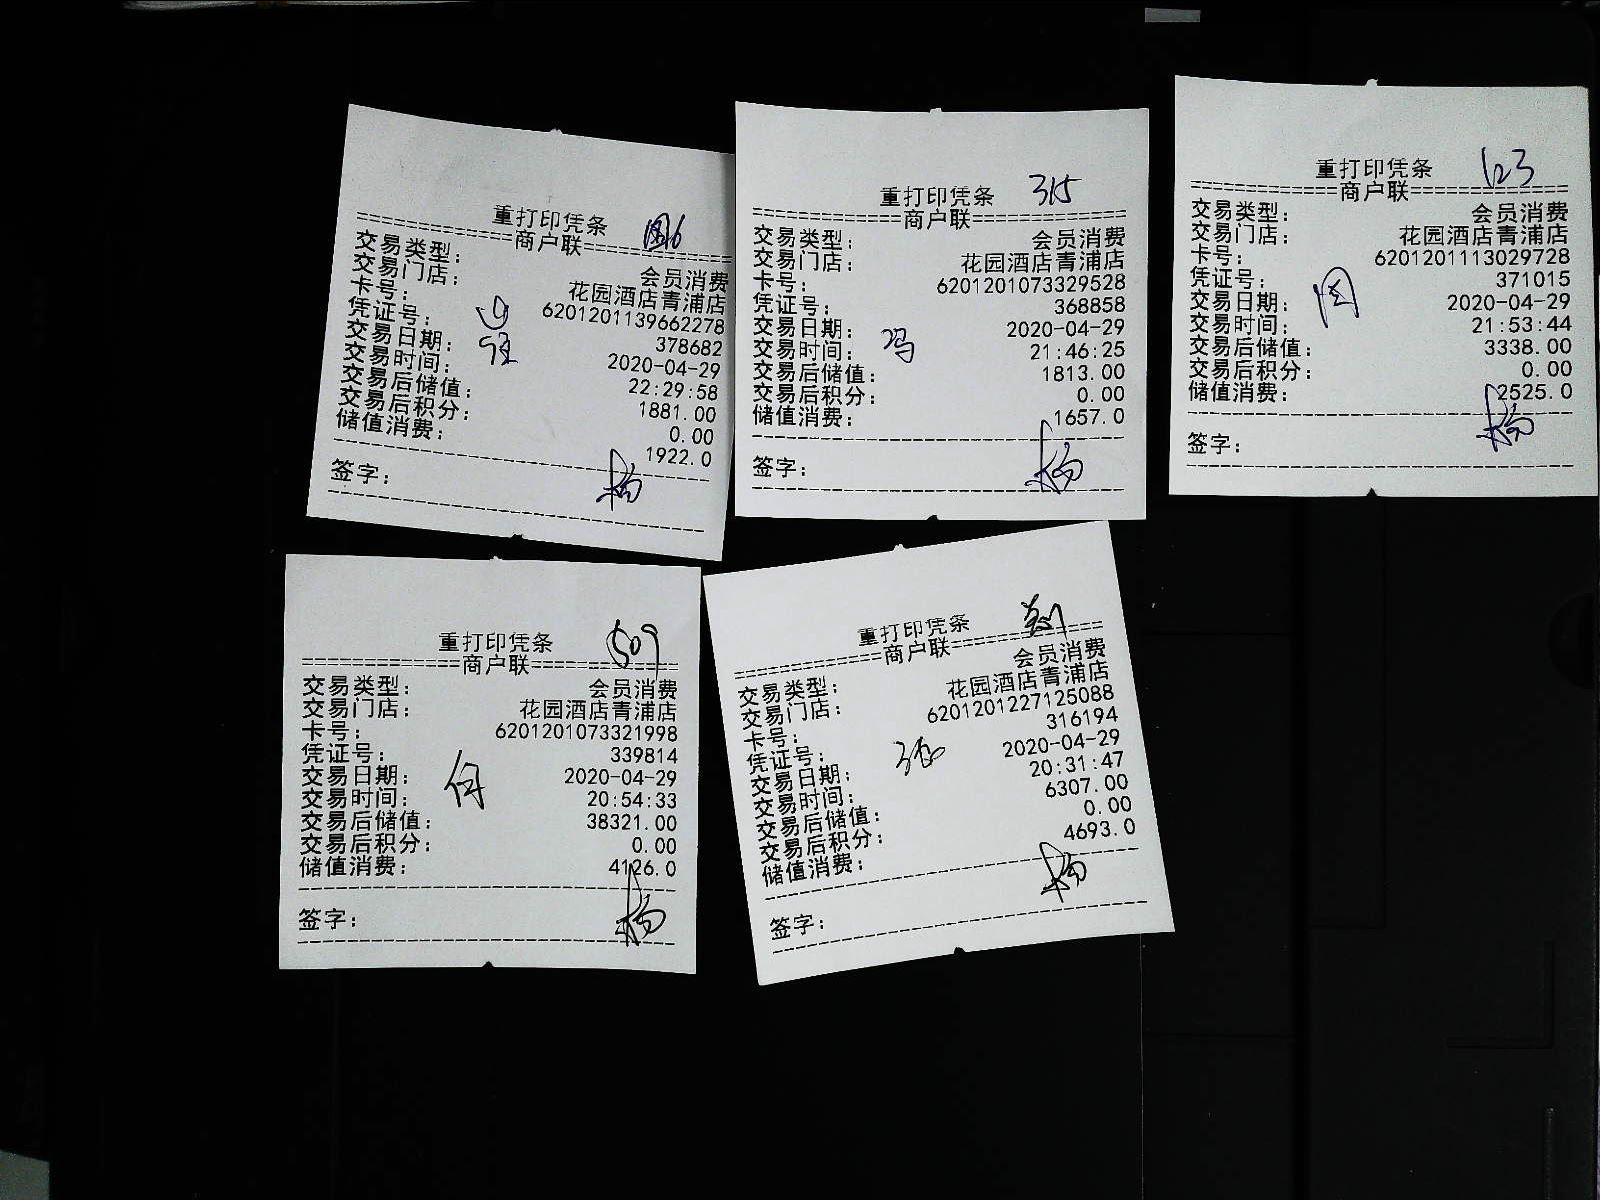 重打印凭条
==========商户联==========
交易类型： 会员消费
交易门店： 花园酒店青浦店
卡号： 6201201139662278
凭证号： 378682
交易日期： 2020-04-29
交易时间： 22:29:58
交易后储值： 1881.00
交易后积分： 0.00
储值消费： 1922.0
签字： 杨
重打印凭条 315
==========商户联==========
交易类型： 会员消费
交易门店： 花园酒店青浦店
卡号： 6201201073329528
凭证号： 368858
交易日期： 2020-04-29
冯
交易时间： 21:46:25
交易后储值： 1813.00
交易后积分： 0.00
储值消费： 1657.0
签字： 杨
重打印凭条 123
==========商户联==========
交易类型： 会员消费
交易门店： 花园酒店青浦店
卡号： 6201201113029728
凭证号： 371015
交易日期： 2020-04-29
交易时间： 21:53:44
交易后储值： 3338.00
交易后积分： 0.00
储值消费： 2525.0
签字： 杨
重打印凭条 509
==========商户联==========
交易类型： 会员消费
交易门店： 花园酒店青浦店
卡号： 6201201073321998
凭证号： 339814
交易日期： 2020-04-29
何
交易时间： 20:54:33
交易后储值： 38321.00
交易后积分： 0.00
储值消费： 4126.0
签字： 杨
重打印凭条
==========商户联==========
交易类型： 会员消费
交易门店： 花园酒店青浦店
卡号： 6201201227125088
凭证号： 316194
交易日期： 2020-04-29
交易时间： 20:31:47
交易后储值： 6307.00
交易后积分： 0.00
储值消费： 4693.0
签字： 杨